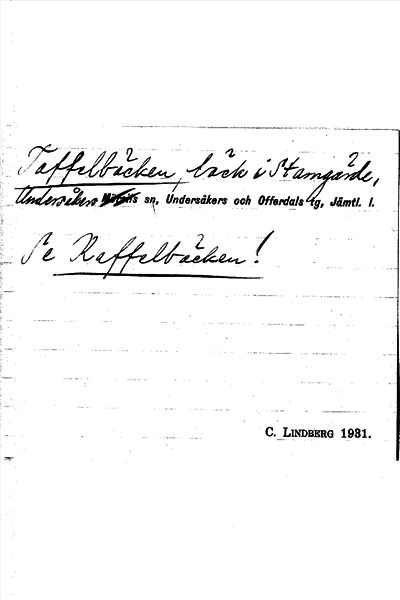 Taffelbäcken, bäck i Stamgärde,
Undersåkers sn, Undersåkers och Offerdals tg, Jämtl. l.
Se Kaffelbäcken!
C. LINDBERG 1931.